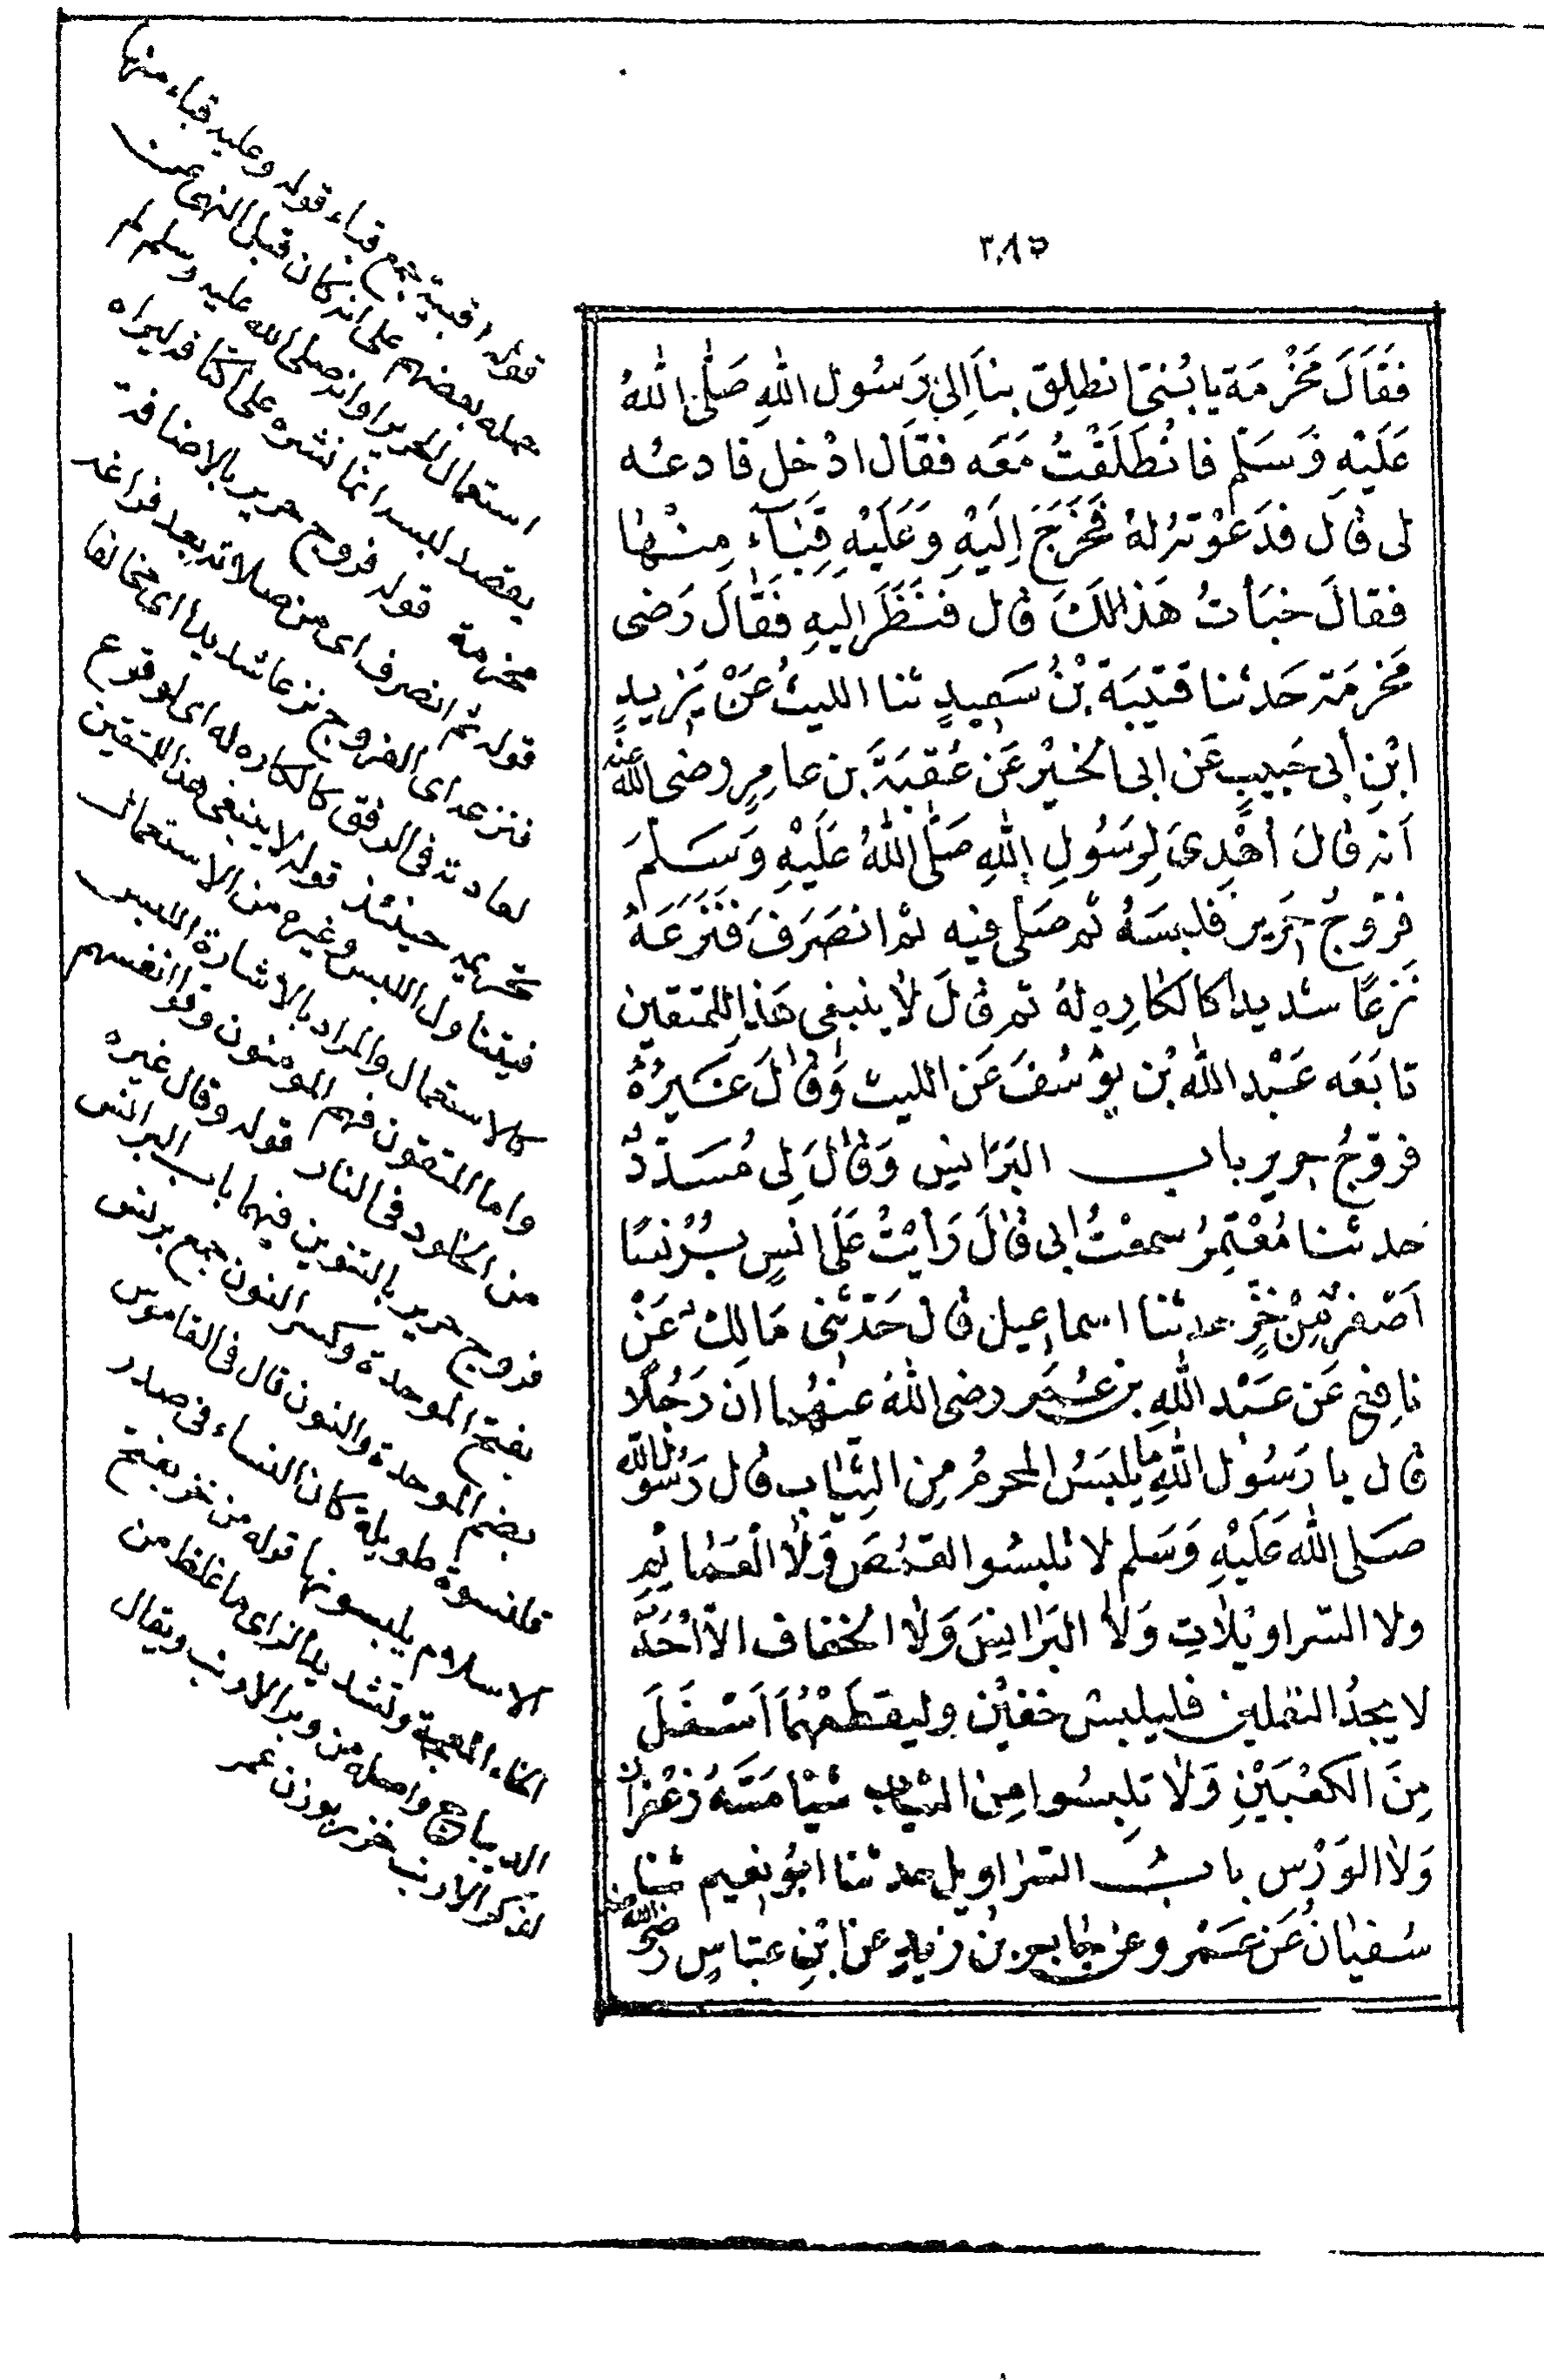 ٣٨٥
فَقَالَ مَخْرَمَة يا بُنَىّ انطلِق بنا اِلىٰ رَسُول اللهِ صَلَّى اللهُ
عَلَيْهِ وَسَلّم فانْطَلَقْتُ مَعَه فقال ادْخل فادعه
لى قال فدَعَوْته لهُ فَخَرَجَ اِلَيْهِ وَعَلَيْهِ قَبَآء مِنْها
فقالَ خبَأتُ هَذا لَكَ قال فَنَظَرَ اليهِ فَقَالَ رَضى
مَخرمَة حَدثنا قتيبَة بْنُ سَعِيدٍ ثنا الليثُ عَنْ يَزِيدٍ
ابْنِ أبى حَبيبٍ عَن ابى الخيْرِ عَن عُقبَةَ بن عامِرٍ رضى الله عنه
اَنه قالَ أهْدِىَ لِرَسُولِ اللهِ صَلَّى اللهُ عَلَيْهِ وَسَلّمَ
فرّوجُ حَرير فلبسَهُ ثم صَلى فيه ثم انصَرَفَ فَنَزَعَهُ
نَزعًا شديدا كالكارِهِ لهُ ثم قالَ لا ينبغى هَذا للمتقين
تابَعَه عَبْد الله بْن يوْسُفَ عَن الليث وَقالَ غَيرُهُ
فرّوجُ حرير باب البَرَانِيس وَقالَ لِى مُسَدّدٌ
حدثنا مُعْتَمِرُ سمعْتُ ابى قالَ رَأيْتُ عَلَى انسٍ بُرْنسًا
اَصْفرَ مِنْ خزٍّ حدثنا اسماعيل قال حَدّثنِى مَالِك عَنْ
نافِعٍ عَن عَبْد اللهِ بن عُمَر رضى الله عنهُما ان رَجُلًا
قال يا رَسُول اللهِ ما يلبَسُ المحرمُ مِن الثِيَابِ قال رَسُول الله
صَلى الله عَلَيْهِ وَسَلم لا تلبسُوا القمُصَ وَلا العَمَائِم
ولا السّراوِيْلات وَلا البَرَانِسَ وَلا الخفاف الا اَحَدٌ
لا يجدُ النعلين فليلبسْ خفيْن وليقطَعْهُمَا اَسْفلَ
مِنَ الكعْبَيْنِ وَلا تلبسُوا مِن الثياب شيْا مَسّهُ زعْفرانٌ
وَلا الوَرْس بابُ السّراويل حدثنا ابُو نعيم ثنا
سُفيٰانُ عَن عَمْرو عن جابر بن زيدٍ عن ابْنِ عبّاسٍ رضى الله عنه
قوله اقبية جمع قباء قوله وعليه قباء منها
حمله بعضهم على انه كان قبل النهى عن
استعمال الحرير او انه صلى الله عليه وسلم لم
يقصد لبسه انما نشره على اكتافه ليراه
مخرمة قوله فروج حرير بالاضافة
قوله ثم انصرف اى من صلاته بعد فراغه
فنزعه اى الفروج نزعا شديدا اى مخالفا
لعادته فى الرفق كالكاره له اى لوقوع
تحريمه حينئذ قوله لا ينبغى هذا للمتقين
فيتناول اللبس وغيره من الاستعمال
كالاستعمال والمراد بالاشارة اللبس
واما المتقون فهم المومنون وقوا انفسهم
من الخلود فى النار قوله وقال غيره
فروج حرير بالتنوين فيهما باب البرانس
بفتح الموحدة وكسر النون جمع برنس
بضم الموحدة والنون قال فى القاموس
قلنسوة طويلة كان النساء فى صدر
الاسلام يلبسونها قوله من خز بفتح
الخاء المعجمة وتشديد الزاى ما غلظ من
الديباج واصله من وبر الارنب ويقال
لذكر الارنب خزز بوزن عمر